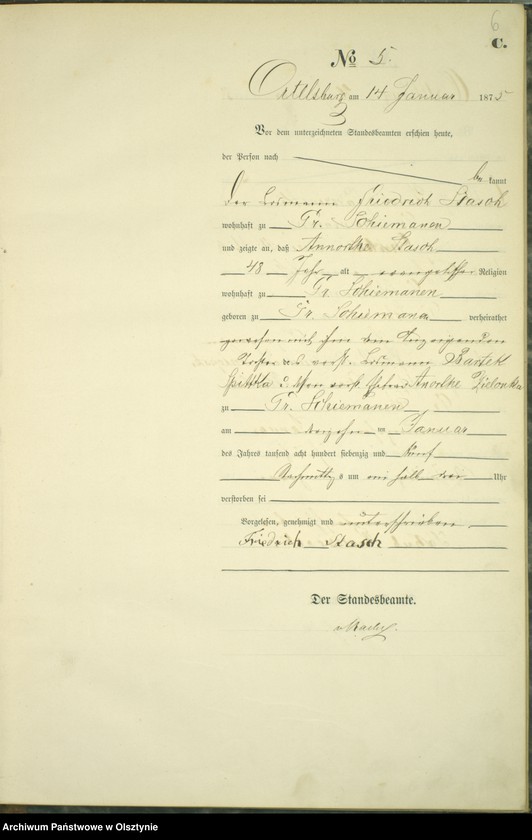 6
C.
No 5.
Ortelsburg am 14 Januar 1875
Vor dem unterzeichneten Standesbeamten erschien heute,
der Person nach
be kannt
der Losmann Friedrich Stasch
wohnhaft zu Gr. Schiemanen
und zeigte an, daß Annorthe Stasch
48 Jahr alt evangelischer Religion
wohnhaft zu Gr. Schiemanen
geboren zu Gr. Schiemanen verheirathet
gewesen mit ihm dem Anzeigenden
Tochter des verst. Losmann Bartek
u. dessen verst. Ehefrau Anorthe
zu Gr. Schiemanen
am dreizehn ten Januar
des Jahres tausend acht hundert siebenzig und fünf
Nachmittags um ein halb drei Uhr
verstorben sei
Vorgelesen, genehmigt und unterschrieben
Friedrich Stasch
Der Standesbeamte.
Archiwum Państwowe w Olsztynie